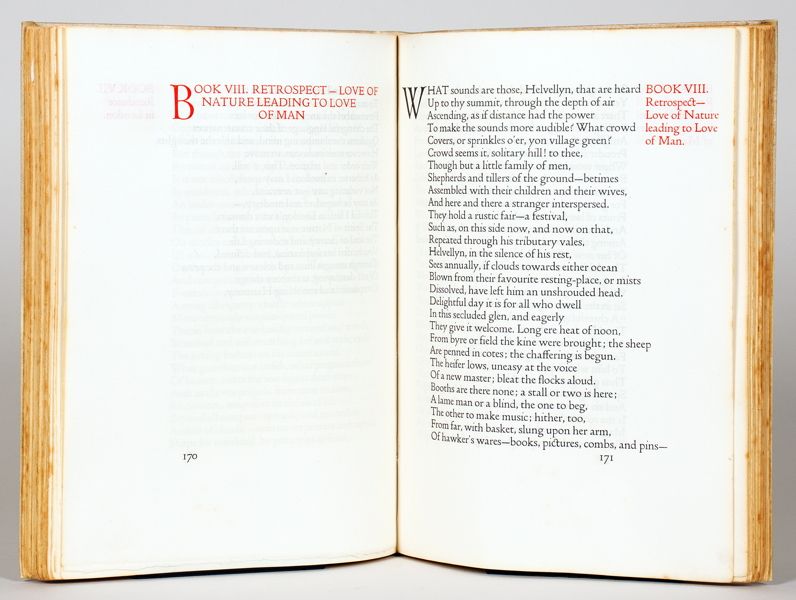 BOOK VIII. RETROSPECT — LOVE OF
NATURE LEADING TO LOVE
OF MAN
170
WHAT sounds are those, Helvellyn, that are heard
Up to thy summit, through the depth of air
Ascending, as if distance had the power
To make the sounds more audible? What crowd
Covers, or sprinkles o'er, yon village green?
Crowd seems it, solitary hill! to thee,
Though but a little family of men,
Shepherds and tillers of the ground—betimes
Assembled with their children and their wives,
And here and there a stranger interspersed.
They hold a rustic fair—a festival,
Such as, on this side now, and now on that,
Repeated through his tributary vales,
Helvellyn, in the silence of his rest,
Sees annually, if clouds towards either ocean
Blown from their favourite resting-place, or mists
Dissolved, have left him an unshrouded head.
Delightful day it is for all who dwell
In this secluded glen, and eagerly
They give it welcome. Long ere heat of noon,
From byre or field the kine were brought; the sheep
Are penned in cotes; the chaffering is begun.
The heifer lows, uneasy at the voice
Of a new master; bleat the flocks aloud.
Booths are there none; a stall or two is here;
A lame man or a blind, the one to beg,
The other to make music; hither, too,
From far, with basket, slung upon her arm,
Of hawker's wares—books, pictures, combs, and pins—
BOOK VIII.
Retrospect—
Love of Nature
leading to Love
of Man.
171